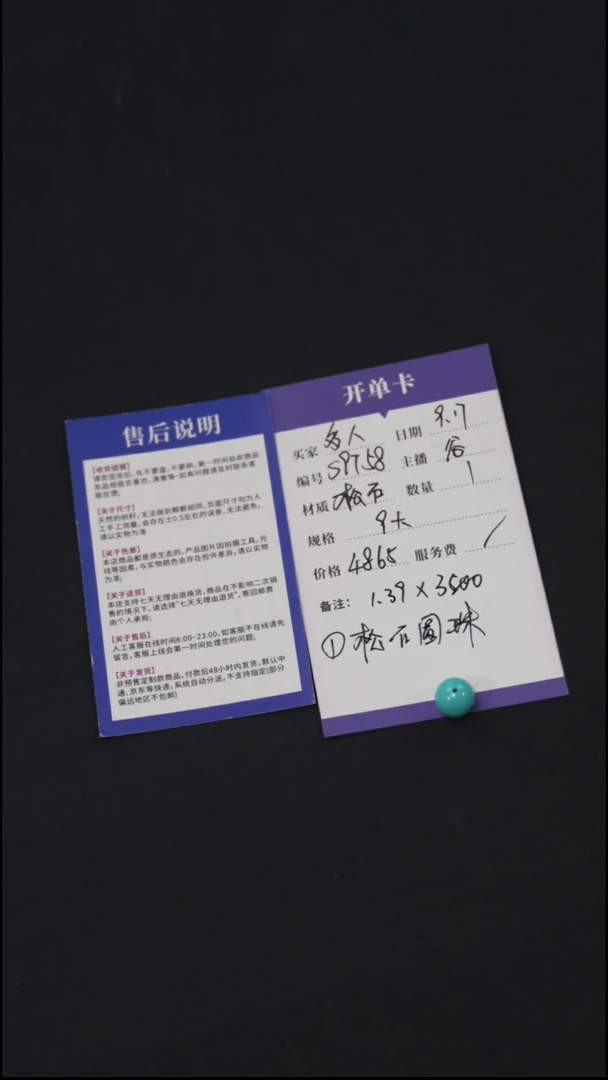 售后说明
【收货提醒】
请您签收后,先不要盘,不要刷,第一时间验收商品
及品相是否喜欢,满意等-如有问题请及时联系客
服反馈;
【关于尺寸】
天然的材料,无法做到颗颗相同,页面尺寸均为人
工手工测量,会存在±0.5左右的误差,无法避免,
请以实物为准
【关于色差】
本店商品都是原生态的,产品图片因拍摄工具,光
线等因素,与实物颜色会存在些许差异,请以实物
为准;
【关于退货】
本店支持七天无理由退换货,商品在不影响二次销
售的情况下,请选择"七天无理由退货",寄回邮费
由个人承担;
【关于售后】
人工客服在线时间8:00~23:00,如客服不在线请先
留言,客服上线会第一时间处理您的问题;
【关于发货】
非预售定制款商品,付款后48小时内发货,默认中
通、京东等快递,系统自动分派,不支持指定(部分
偏远地区不包邮)
开单卡
买家 人 日期 9.17
编号 S9758 主播 谷
材质 松石 数量 1
规格 9大
价格 4865 服务费 /
备注: 1.39×3500
①松石圆珠